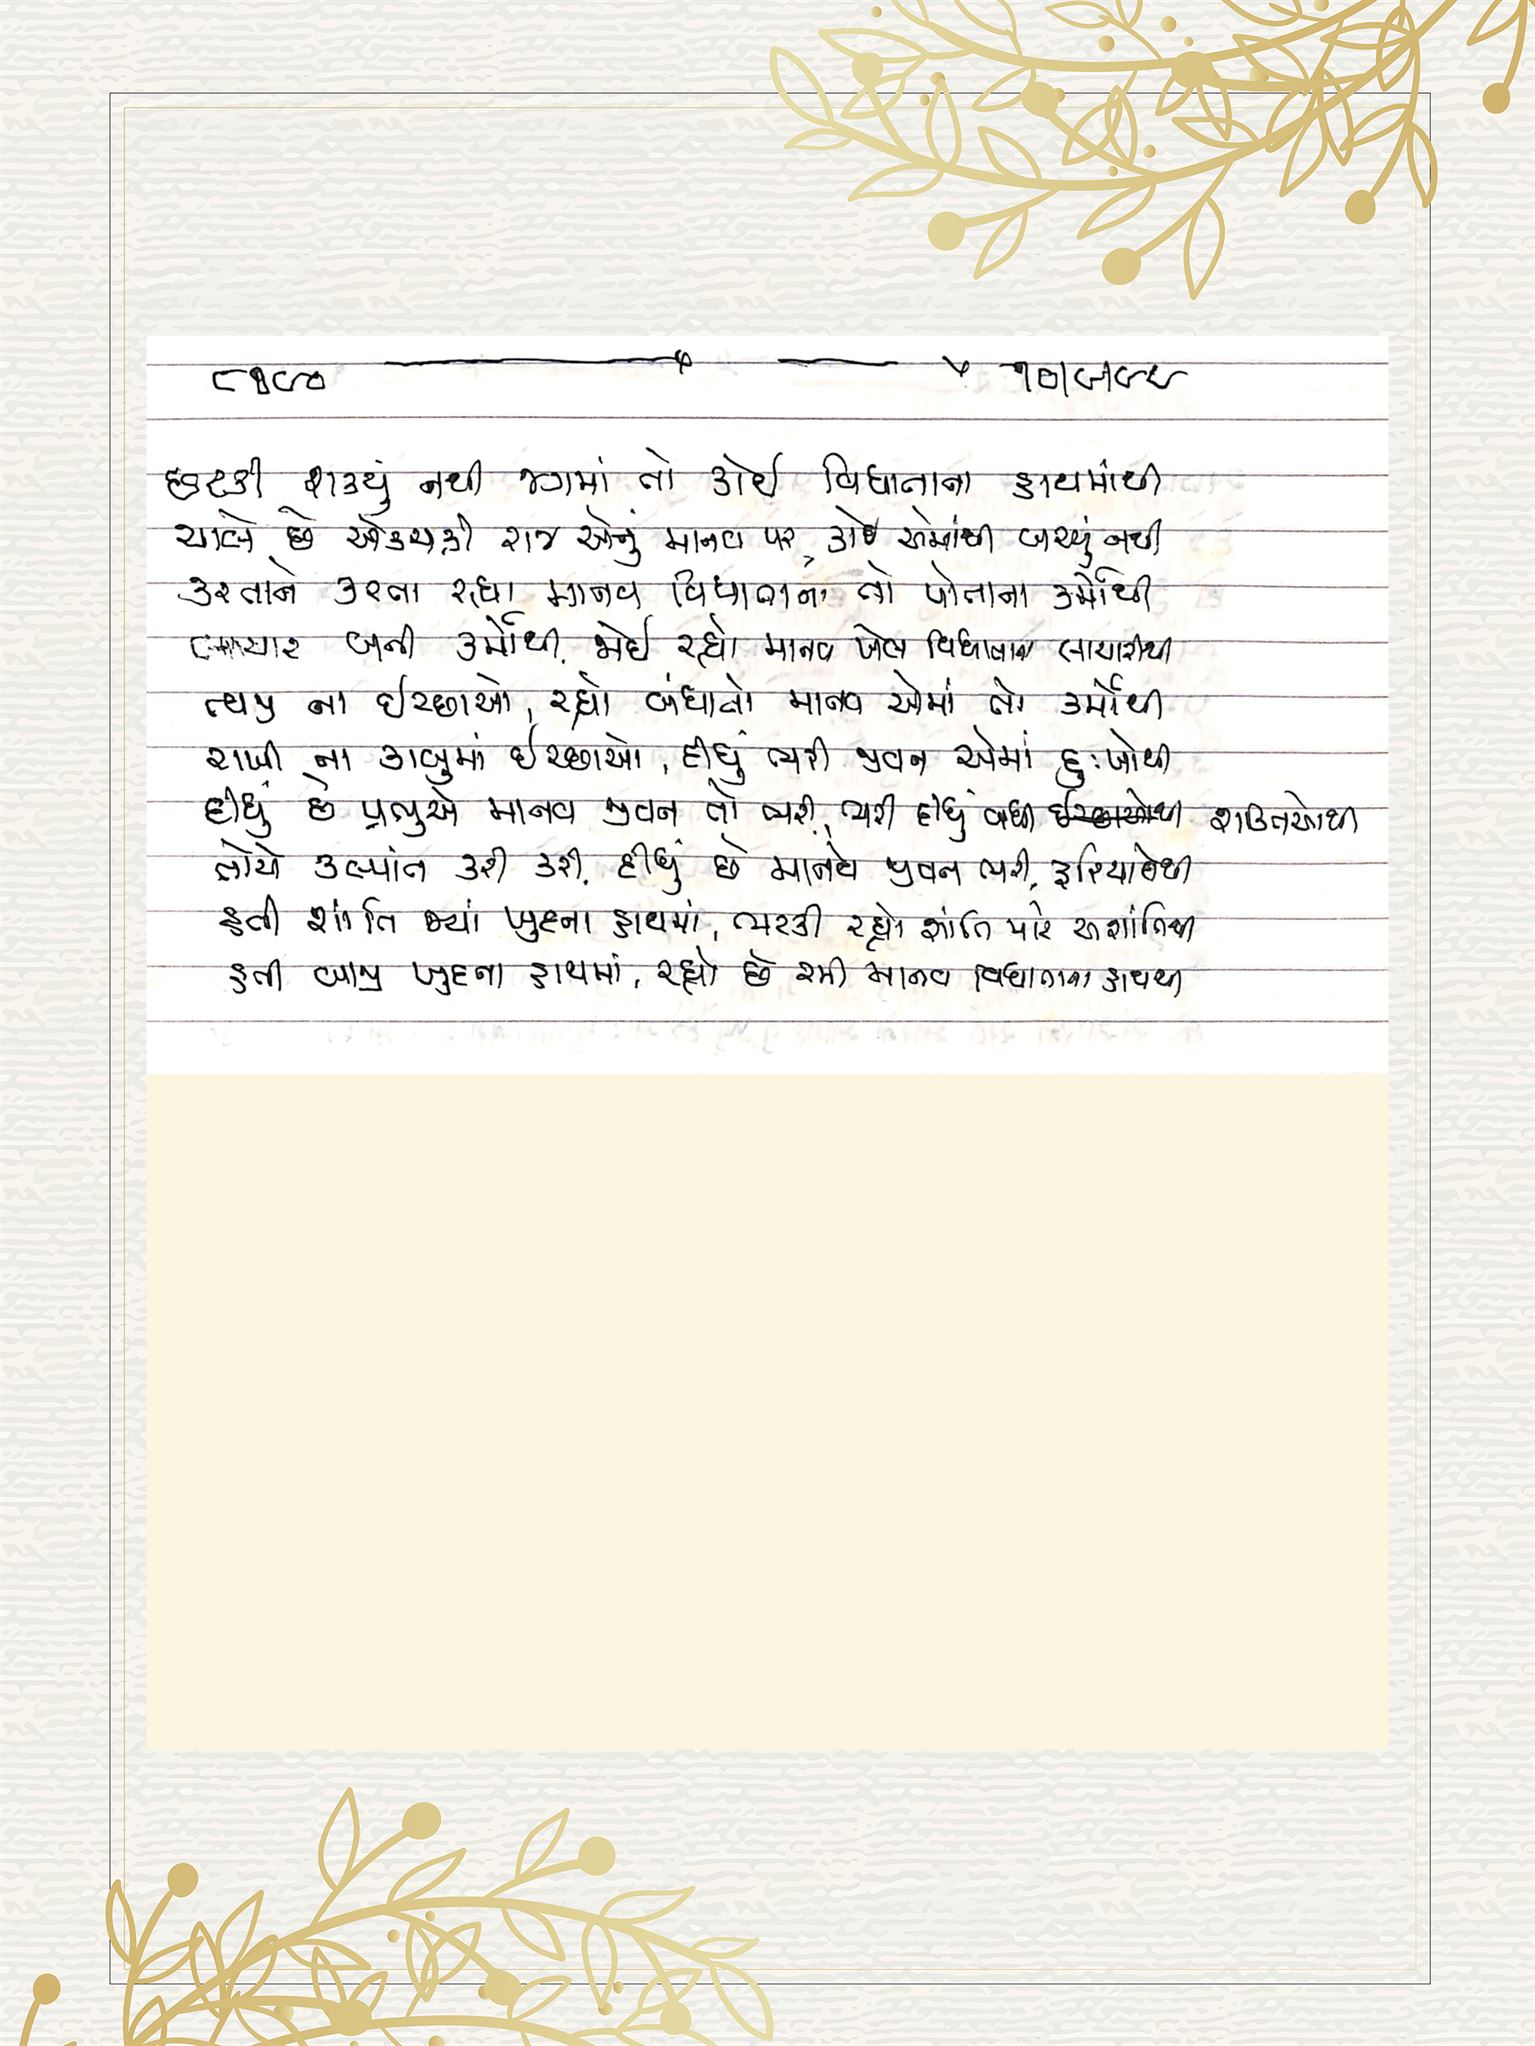 ૮૧૯૦ ૧૦/૯/૯૯
છટકી શક્યું નથી જગમાં તો કોઈ વિધાતાના હાથમાંથી
ચાલે છે એકચક્રી રાજ એનું માનવ પર, કોઈ એમાંથી બચ્યું નથી
કરતાને કરતા રહ્યા માનવ વિધાતાના તો પોતાના કર્મોથી
લાચાર બની કર્મોથી, જોઈ રહ્યો માનવ ખેલ વિધાતાના લાચારીથી
ત્યજી ના ઈચ્છાઓ, રહ્યો બંધાતો માનવ એમાં તો કર્મોથી
રાખી ના કાબુમાં ઈચ્છાઓ, દીધું ભરી જીવન એમાં દુઃખોથી
દીધું છે પ્રભુએ માનવ જીવન તો ભરી, ભરી દીધું બધી શક્તિઓથી
તોયે કલ્પાંત કરી કરી, દીધું છે માનવે જીવન ભરી, ફરિયાદોથી
હતી શાંતિ જ્યાં ખુદના હાથમાં, ભટકી રહ્યો શાંતિ માટે અશાંતિથી
હતી બાજી ખુદના હાથમાં, રહ્યો છે રમી માનવ વિધાતાના હાથથી